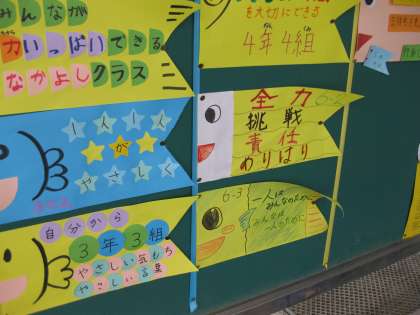 みんなが
力いっぱいできる
なかよしクラス
を大切にできる
4年4組
一人一人
が
やさしく
全力 6-2
挑戦
責任
めりはり
自分から
3年3組
やさしい気もち
やさしい言葉
6-3
一人は
みんなのために
みんなは
一人のために